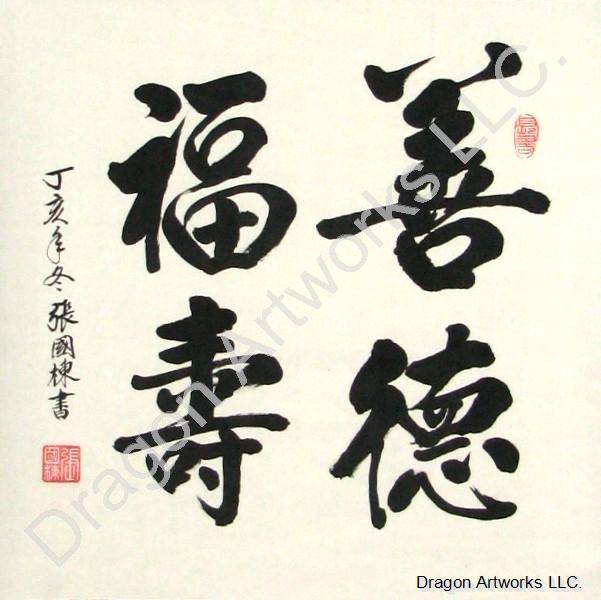 善德
福壽
丁亥年冬張國棟書
張國棟
Dragon Artworks LLC.
Dragon Artworks LLC.